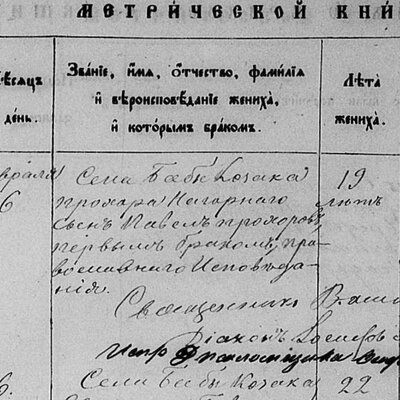 МЕТРИЧЕСКОЙ КНИ
МѢСЯЦЪ
день.
Званіе, имя, отчество, фамилія
и вѣроисповѣданіе жениха,
и которымъ бракомъ.
Лѣта
жениха.
враля
6
Села Бабы Козака
Прохора Нагорнаго
Сынъ Павелъ Прохоровъ,
первымъ бракомъ, пра-
вославнаго Исповѣда-
нія.
19
лѣтъ
Священникъ
Діаконъ
6.
Села Бабы Козака
22